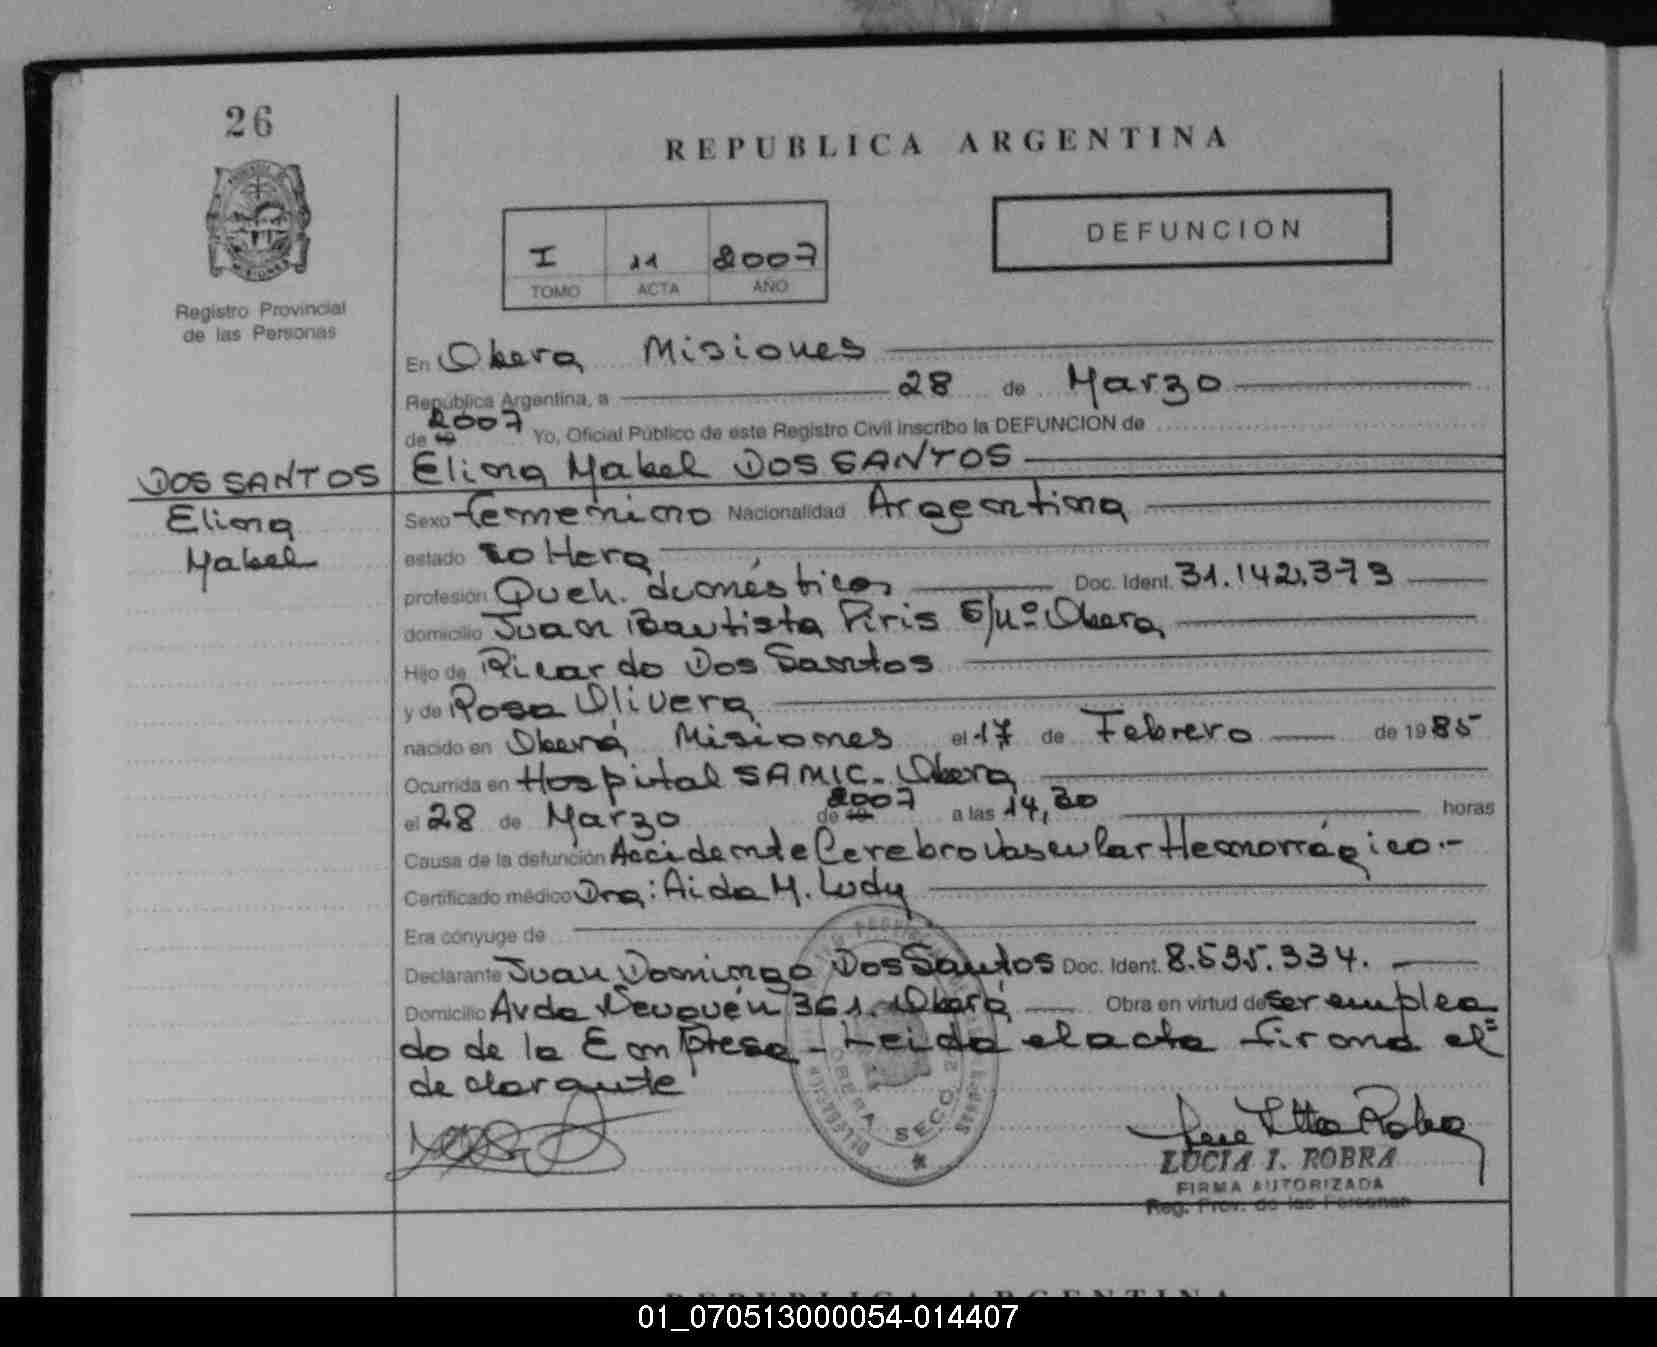 26
REPUBLICA ARGENTINA
DEFUNCION
I 11 2007
TOMO ACTA AÑO
Registro Provincial
de las Personas
En Obera Misiones
República Argentina, a 28 de Marzo
de 19 2007 Yo, Oficial Público de este Registro Civil inscribo la DEFUNCION de
DOS SANTOS Elina Mabel DOS SANTOS
Elina
Mabel
Sexo femenino Nacionalidad Argentina
estado soltera
profesión Queh. domésticos Doc. Ident. 31.142.373
domicilio Juan Bautista Piris S/Nº Obera
Hijo de Ricardo Dos Santos
y de Rosa Olivera
nacido en Oberá Misiones el 17 de Febrero de 1985
Ocurrida en Hospital SAMIC - Obera
el 28 de Marzo de 19 2007 a las 14, horas
Causa de la defunción Accidente Cerebrovascular Hemorrágico.-
Certificado médico Dra: Aida M. Ludy
Era cónyuge de
Declarante Juan Domingo Dos Santos Doc. Ident. 8.535.334.
Domicilio Avda Neuquén 361. Oberá Obra en virtud de ser emplea
do de la Empresa - Leida el acta firma el=
declarante
OBERA SECC. 2
LUCIA I. ROBRA
FIRMA AUTORIZADA
Reg. Prov. de las Personas
REPUBLICA ARGENTINA
01_070513000054-014407